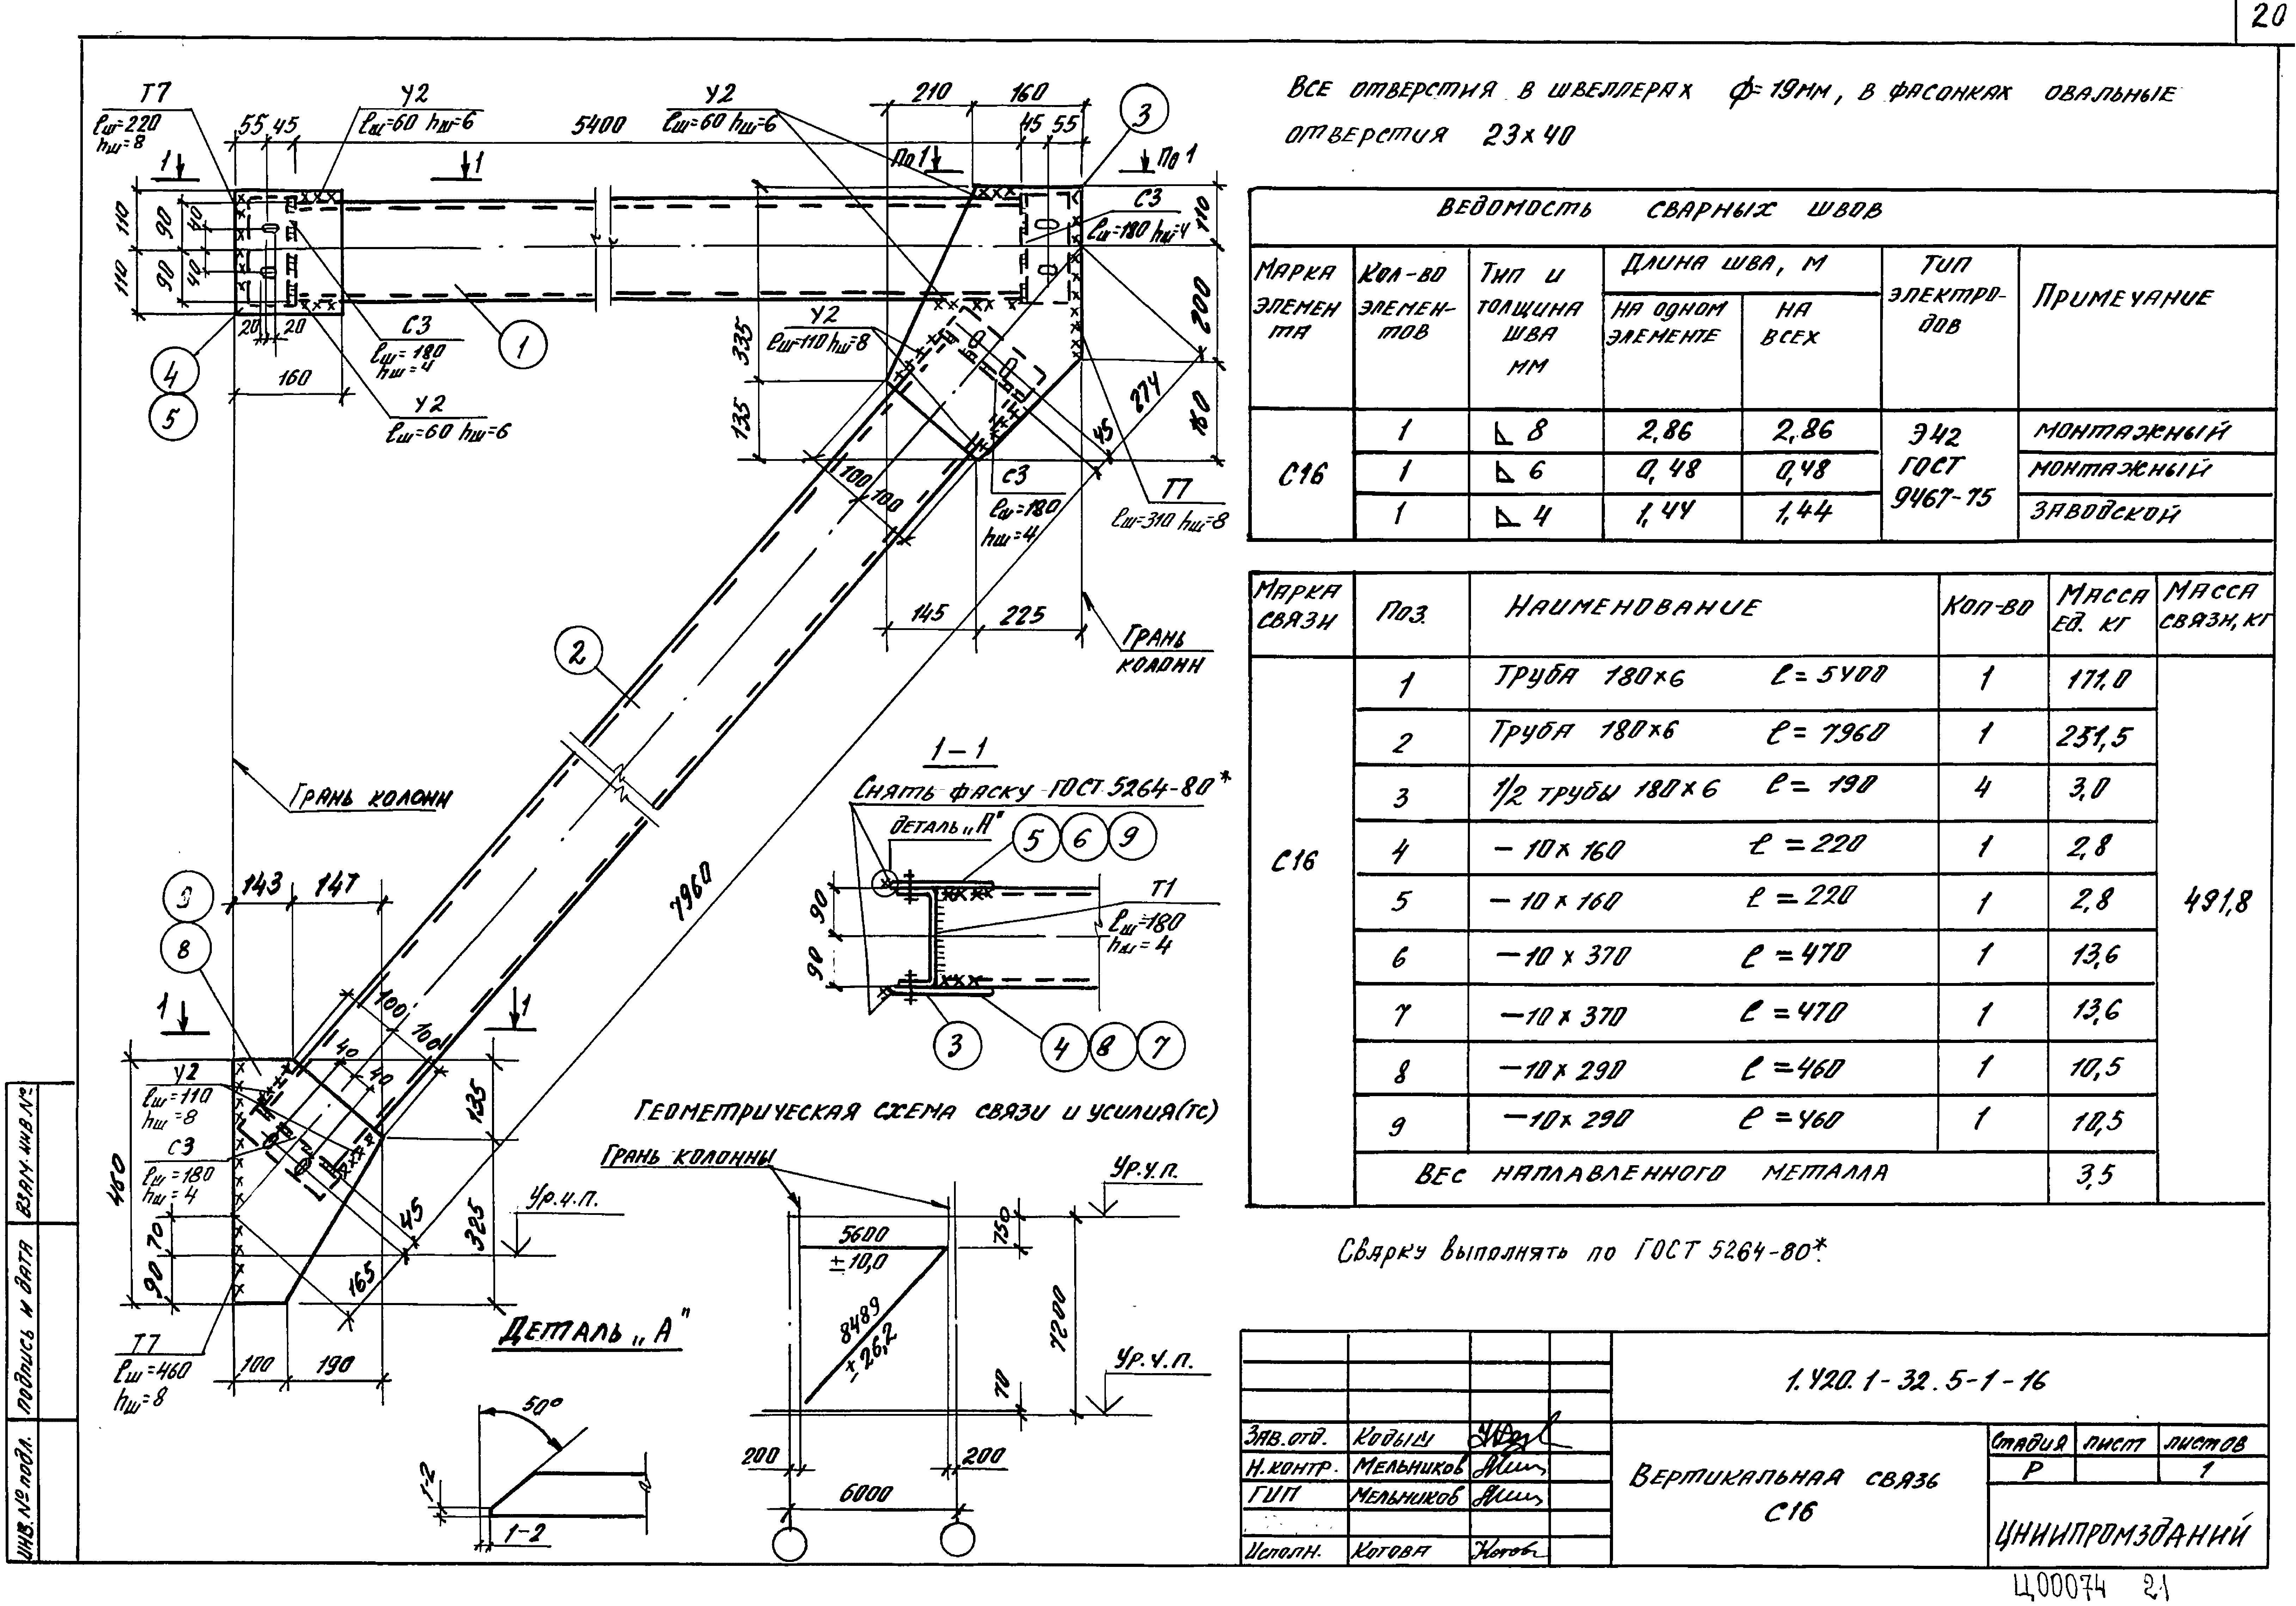 20
Все отверстия в швеллерах ф=19мм, в фасонках овальные
отверстия 23×40
Т7
ℓш=220
hш=8
У2
ℓш=60 hш=6
5400
У2
ℓш=60 hш=6
210
160
3
55
45
45
55
1
1
По 1
По 1
110
110
90
90
40
40
20
20
С3
ℓш=180
hш=4
1
4
5
160
У2
ℓш=60 hш=6
С3
ℓш=180 hш=4
110
200
160
335
135
У2
ℓш=110 hш=8
274
45
100
100
С3
ℓш=180
hш=4
Т7
ℓш=310 hш=8
145
225
Грань
колонн
2
Грань колонн
7960
143
147
9
8
1
1
100
100
40
40
У2
ℓш=110
hш=8
С3
ℓш=180
hш=4
460
70
90
135
325
45
165
Ур.ч.п.
Т7
ℓш=460
hш=8
100
190
1-1
Снять фаску ГОСТ 5264-80*
деталь „А"
5
6
9
90
90
Т1
ℓш=180
hш=4
3
4
8
7
Геометрическая схема связи и усилия(тс)
Грань колонны
Ур.ч.п.
5600
±10,0
750
8489
±26,2
7200
70
Ур.ч.п.
200
200
6000
Деталь „А"
50°
1-2
1-2
Ведомость сварных швов
Марка элемен та
Кол-во элемен-тов
Тип и толщина шва мм
Длина шва, м
на одном элементе
на всех
Тип электро-дов
Примечание
С16
1 8 2,86 2,86 Э42 ГОСТ 9467-75 монтажный
1 6 0,48 0,48 монтажный
1 4 1,44 1,44 заводской
Марка связи
Поз.
Наименование
Кол-во
Масса ед. кг
Масса связи, кг
С16
1 Труба 180×6 ℓ=5400 1 171,0
2 Труба 180×6 ℓ=7960 1 251,5
3 1/2 трубы 180×6 ℓ=190 4 3,0
4 -10×160 ℓ=220 1 2,8
5 -10×160 ℓ=220 1 2,8
491,8
6 -10×370 ℓ=470 1 13,6
7 -10×370 ℓ=470 1 13,6
8 -10×290 ℓ=460 1 10,5
9 -10×290 ℓ=460 1 10,5
Вес наплавленного металла 3,5
Сварку выполнять по ГОСТ 5264-80*.
1.420.1-32.5-1-16
Зав.отд. Кодыш
Н.контр. Мельников
ГИП Мельников
Исполн. Котова
Вертикальная связь
С16
Стадия лист листов
Р 1
ЦНИИПРОМЗДАНИЙ
Ц00074 21
Взам.инв.№
Подпись и дата
Инв.№подл.